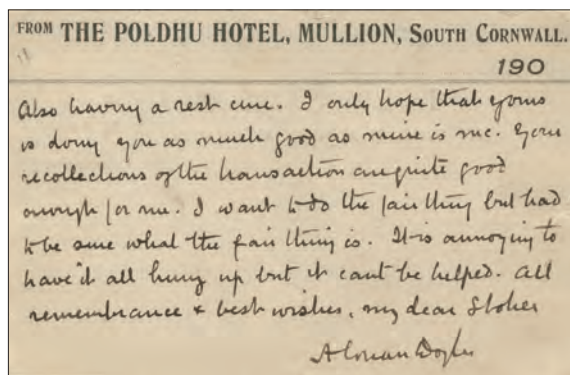 FROM THE POLDHU HOTEL, MULLION, SOUTH CORNWALL.
190
Also having a rest cure. I only hope that yours
is doing you as much good as mine is me. Your
recollections of the transaction are quite good
enough for me. I want to do the fair thing but had
to be sure what the fair thing is. It is annoying to
have it all hung up but it cant be helped. All
remembrance & best wishes, my dear Stoker
A Conan Doyle